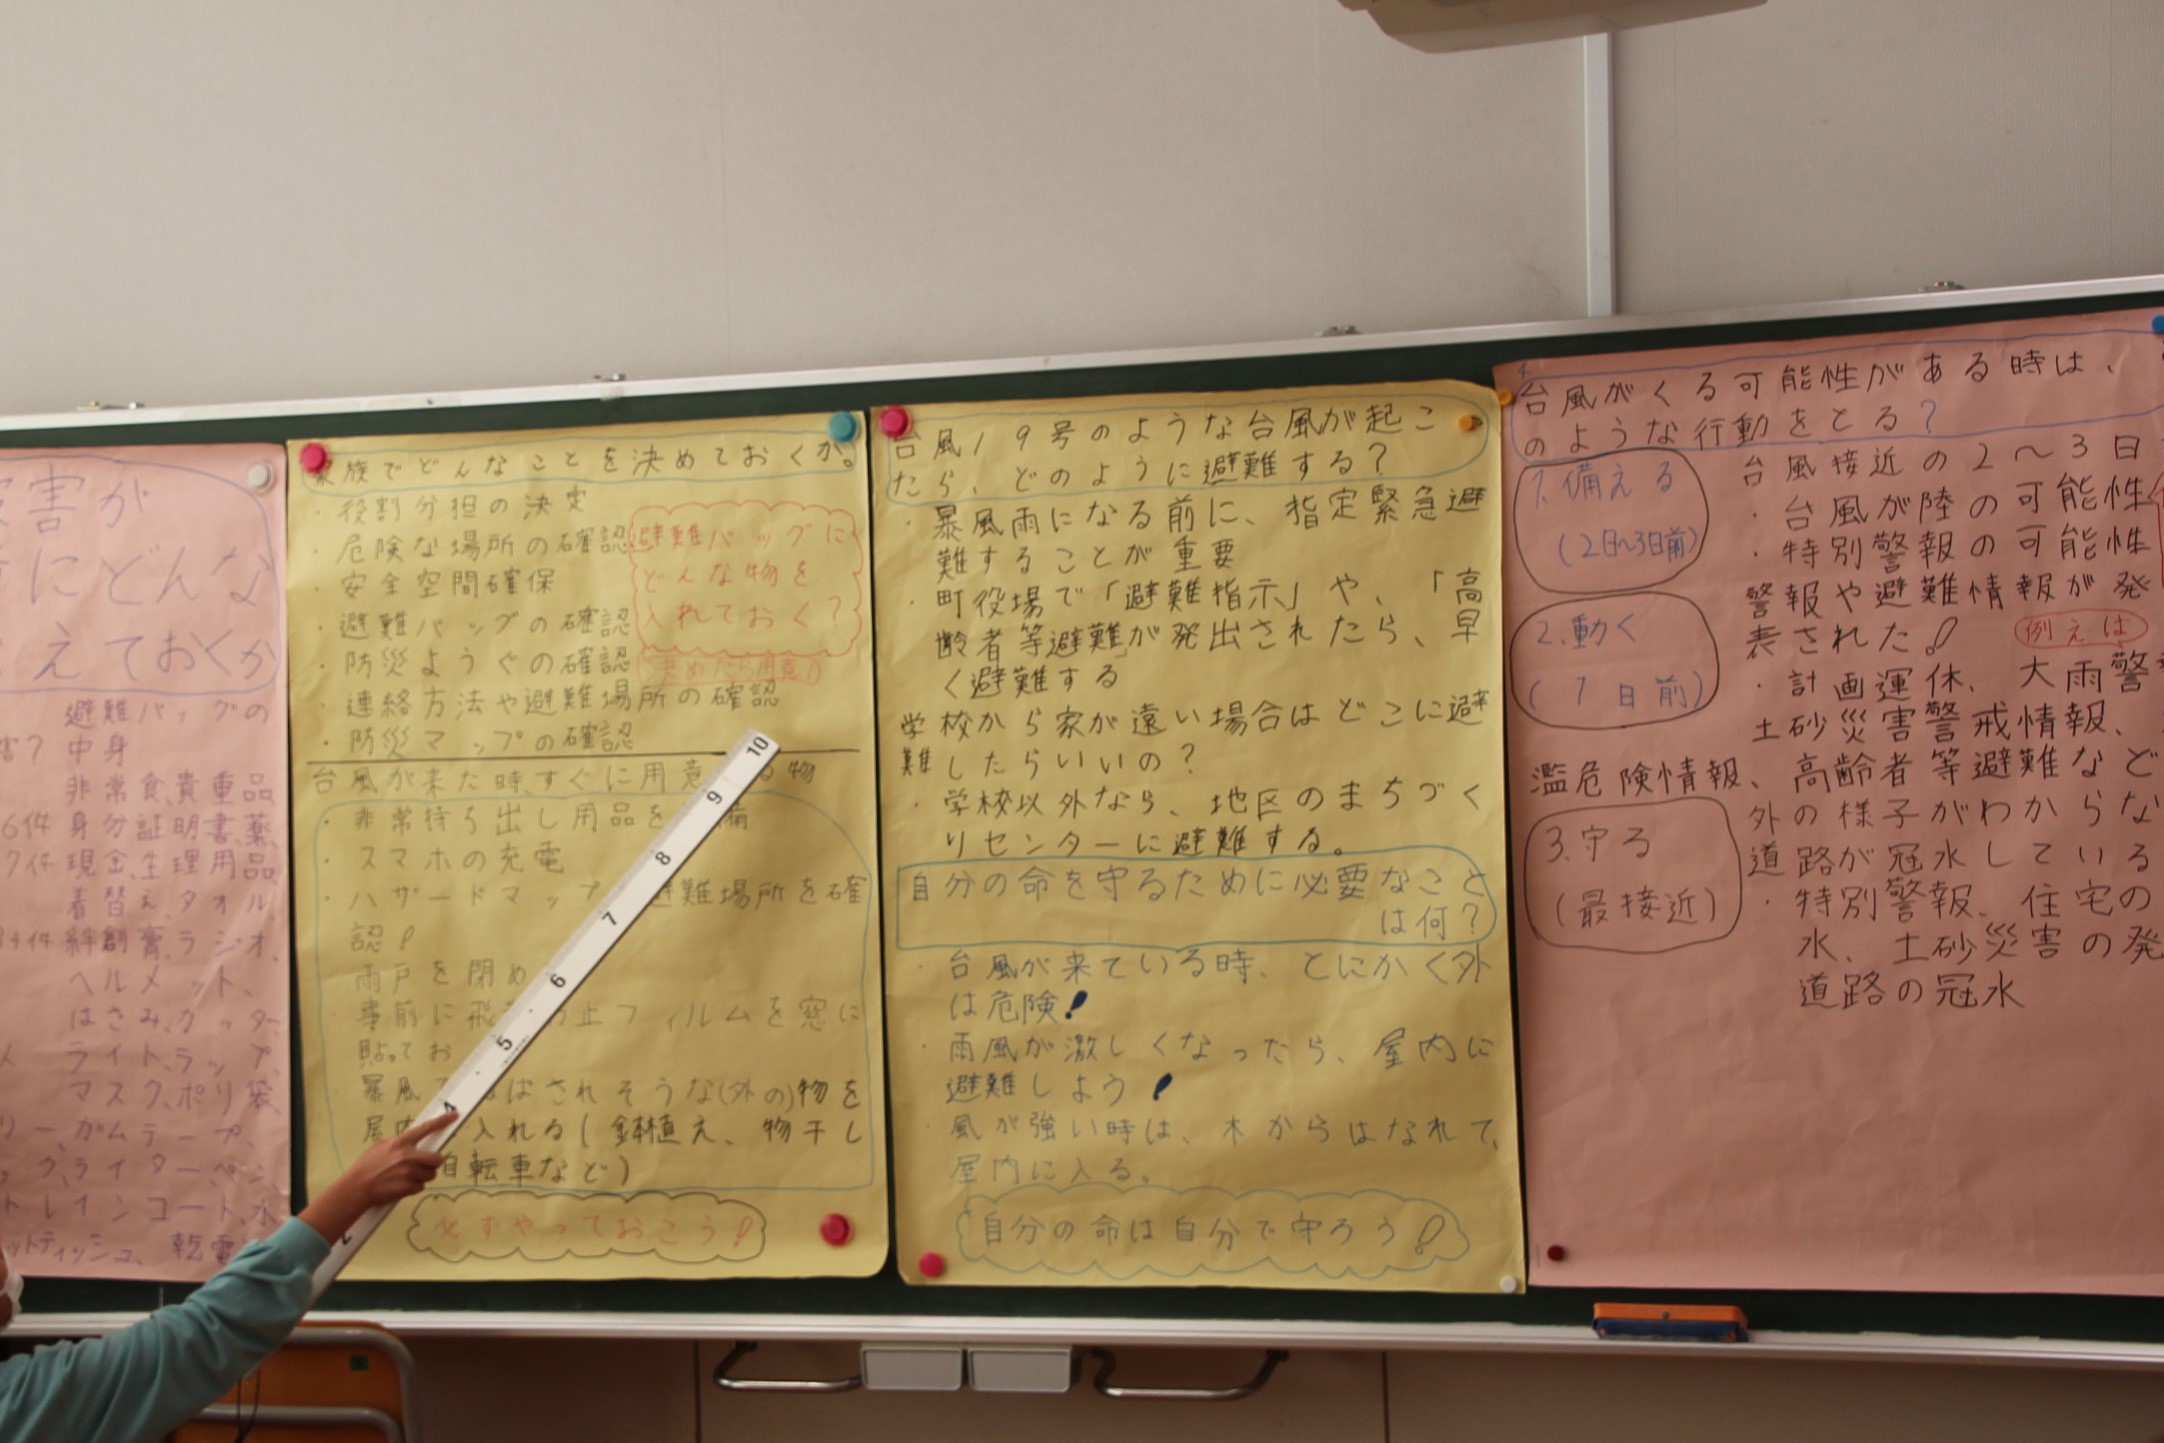 害が
にどんな
えておくか
避難バッグの
中身
非常食、貴重品
6件 身分証明書、薬、
7件 現金、生理用品
着替え、タオル、
件 絆創膏、ラジオ、
ヘルメット、
はさみ、カッター
ライト、ラップ、
マスク、ポリ袋、
ガムテープ、
ライター、ペン、
レインコート、水
ットティッシュ、乾電
家族でどんなことを決めておくか。
・役割分担の決定
・危険な場所の確認
・安全空間確保
・避難バッグの確認
・防災ようぐの確認
・連絡方法や避難場所の確認
・防災マップの確認
避難バッグに
どんな物を
入れておく?
台風が来た時、すぐに用意 る物
・非常持ち出し用品を 備
・スマホの充電
・ハザードマップ 避難場所を確
認!
雨戸を閉め
事前に飛 防止フィルムを窓に
貼ってお
暴風で ばされそうな(外の)物を
屋内 入れる(鉢植え、物干し
自転車など)
必ずやっておこう!
台風19号のような台風が起こ
たら、どのように避難する?
・暴風雨になる前に、指定緊急避
難することが重要
・町役場で「避難指示」や、「高
齢者等避難」が発出されたら、早
く避難する
学校から家が遠い場合はどこに避
難したらいいの?
・学校以外なら、地区のまちづく
りセンターに避難する。
自分の命を守るために必要なこと
は何?
・台風が来ている時、とにかく外
は危険!
・雨風が激しくなったら、屋内に
避難しよう!
・風が強い時は、木からはなれて、
屋内に入る。
自分の命は自分で守ろう!
台風がくる可能性がある時は、
のような行動をとる?
1.備える
(2日~3日前)
台風接近の2~3日
・台風が陸の可能性
・特別警報の可能性
2.動く
(1日前)
警報や避難情報が発
表された!
例えば
・計画運休、大雨警
土砂災害警戒情報、
濫危険情報、高齢者等避難など
3.守る
(最接近)
外の様子がわからな
道路が冠水している
・特別警報、住宅の
水、土砂災害の発
道路の冠水
10
9
8
7
6
5
4
2